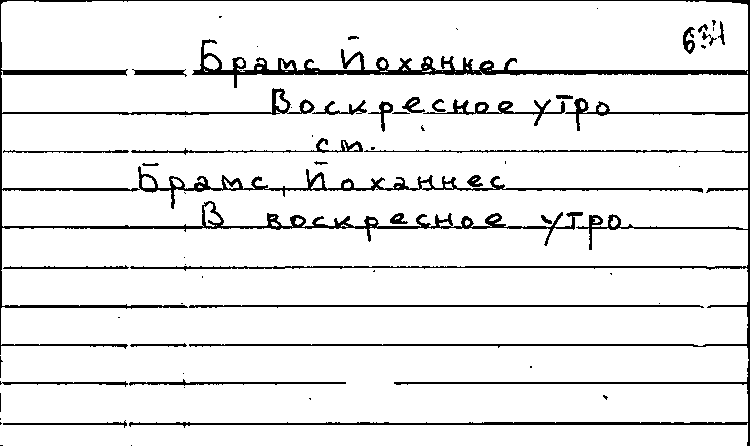 Брамс Йоханнес
Воскресное утро
см.
Брамс, Йоханнес
В воскресное утро.